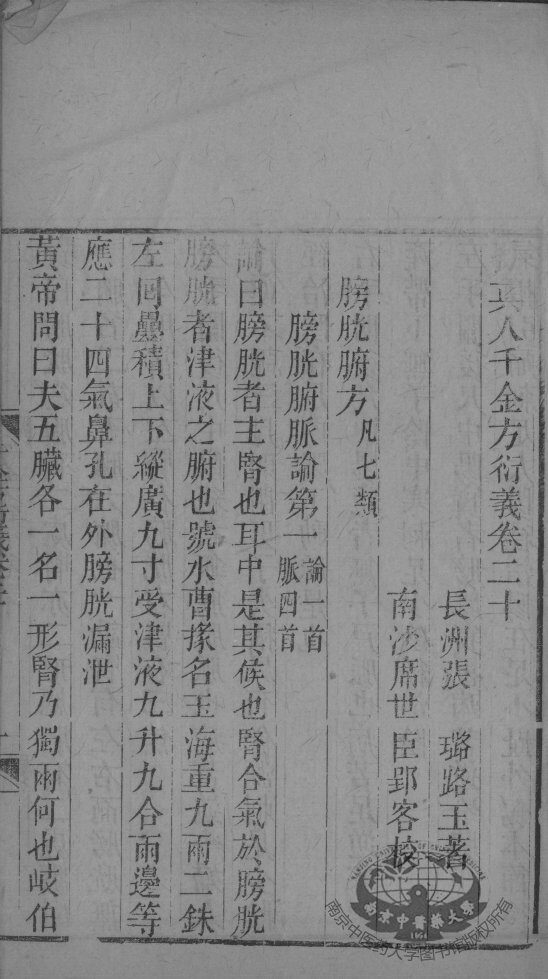 真人千金方衍義卷二十
長洲張　璐路玉著
南沙席世臣郢客校
膀胱腑方凡七類
膀胱腑脈論第一論一首脈四首
論曰膀胱者主腎也耳中是其候也腎合氣於膀胱
膀胱者津液之腑也號水曹掾名玉海重九兩二銖
左回疊積上下縱廣九寸受津液九升九合兩邊等
應二十四氣鼻孔在外膀胱漏泄
黃帝問曰夫五臟各一名一形腎乃獨兩何也岐伯
南京中醫藥大學
1954
南京中医药大学图书馆版权所有